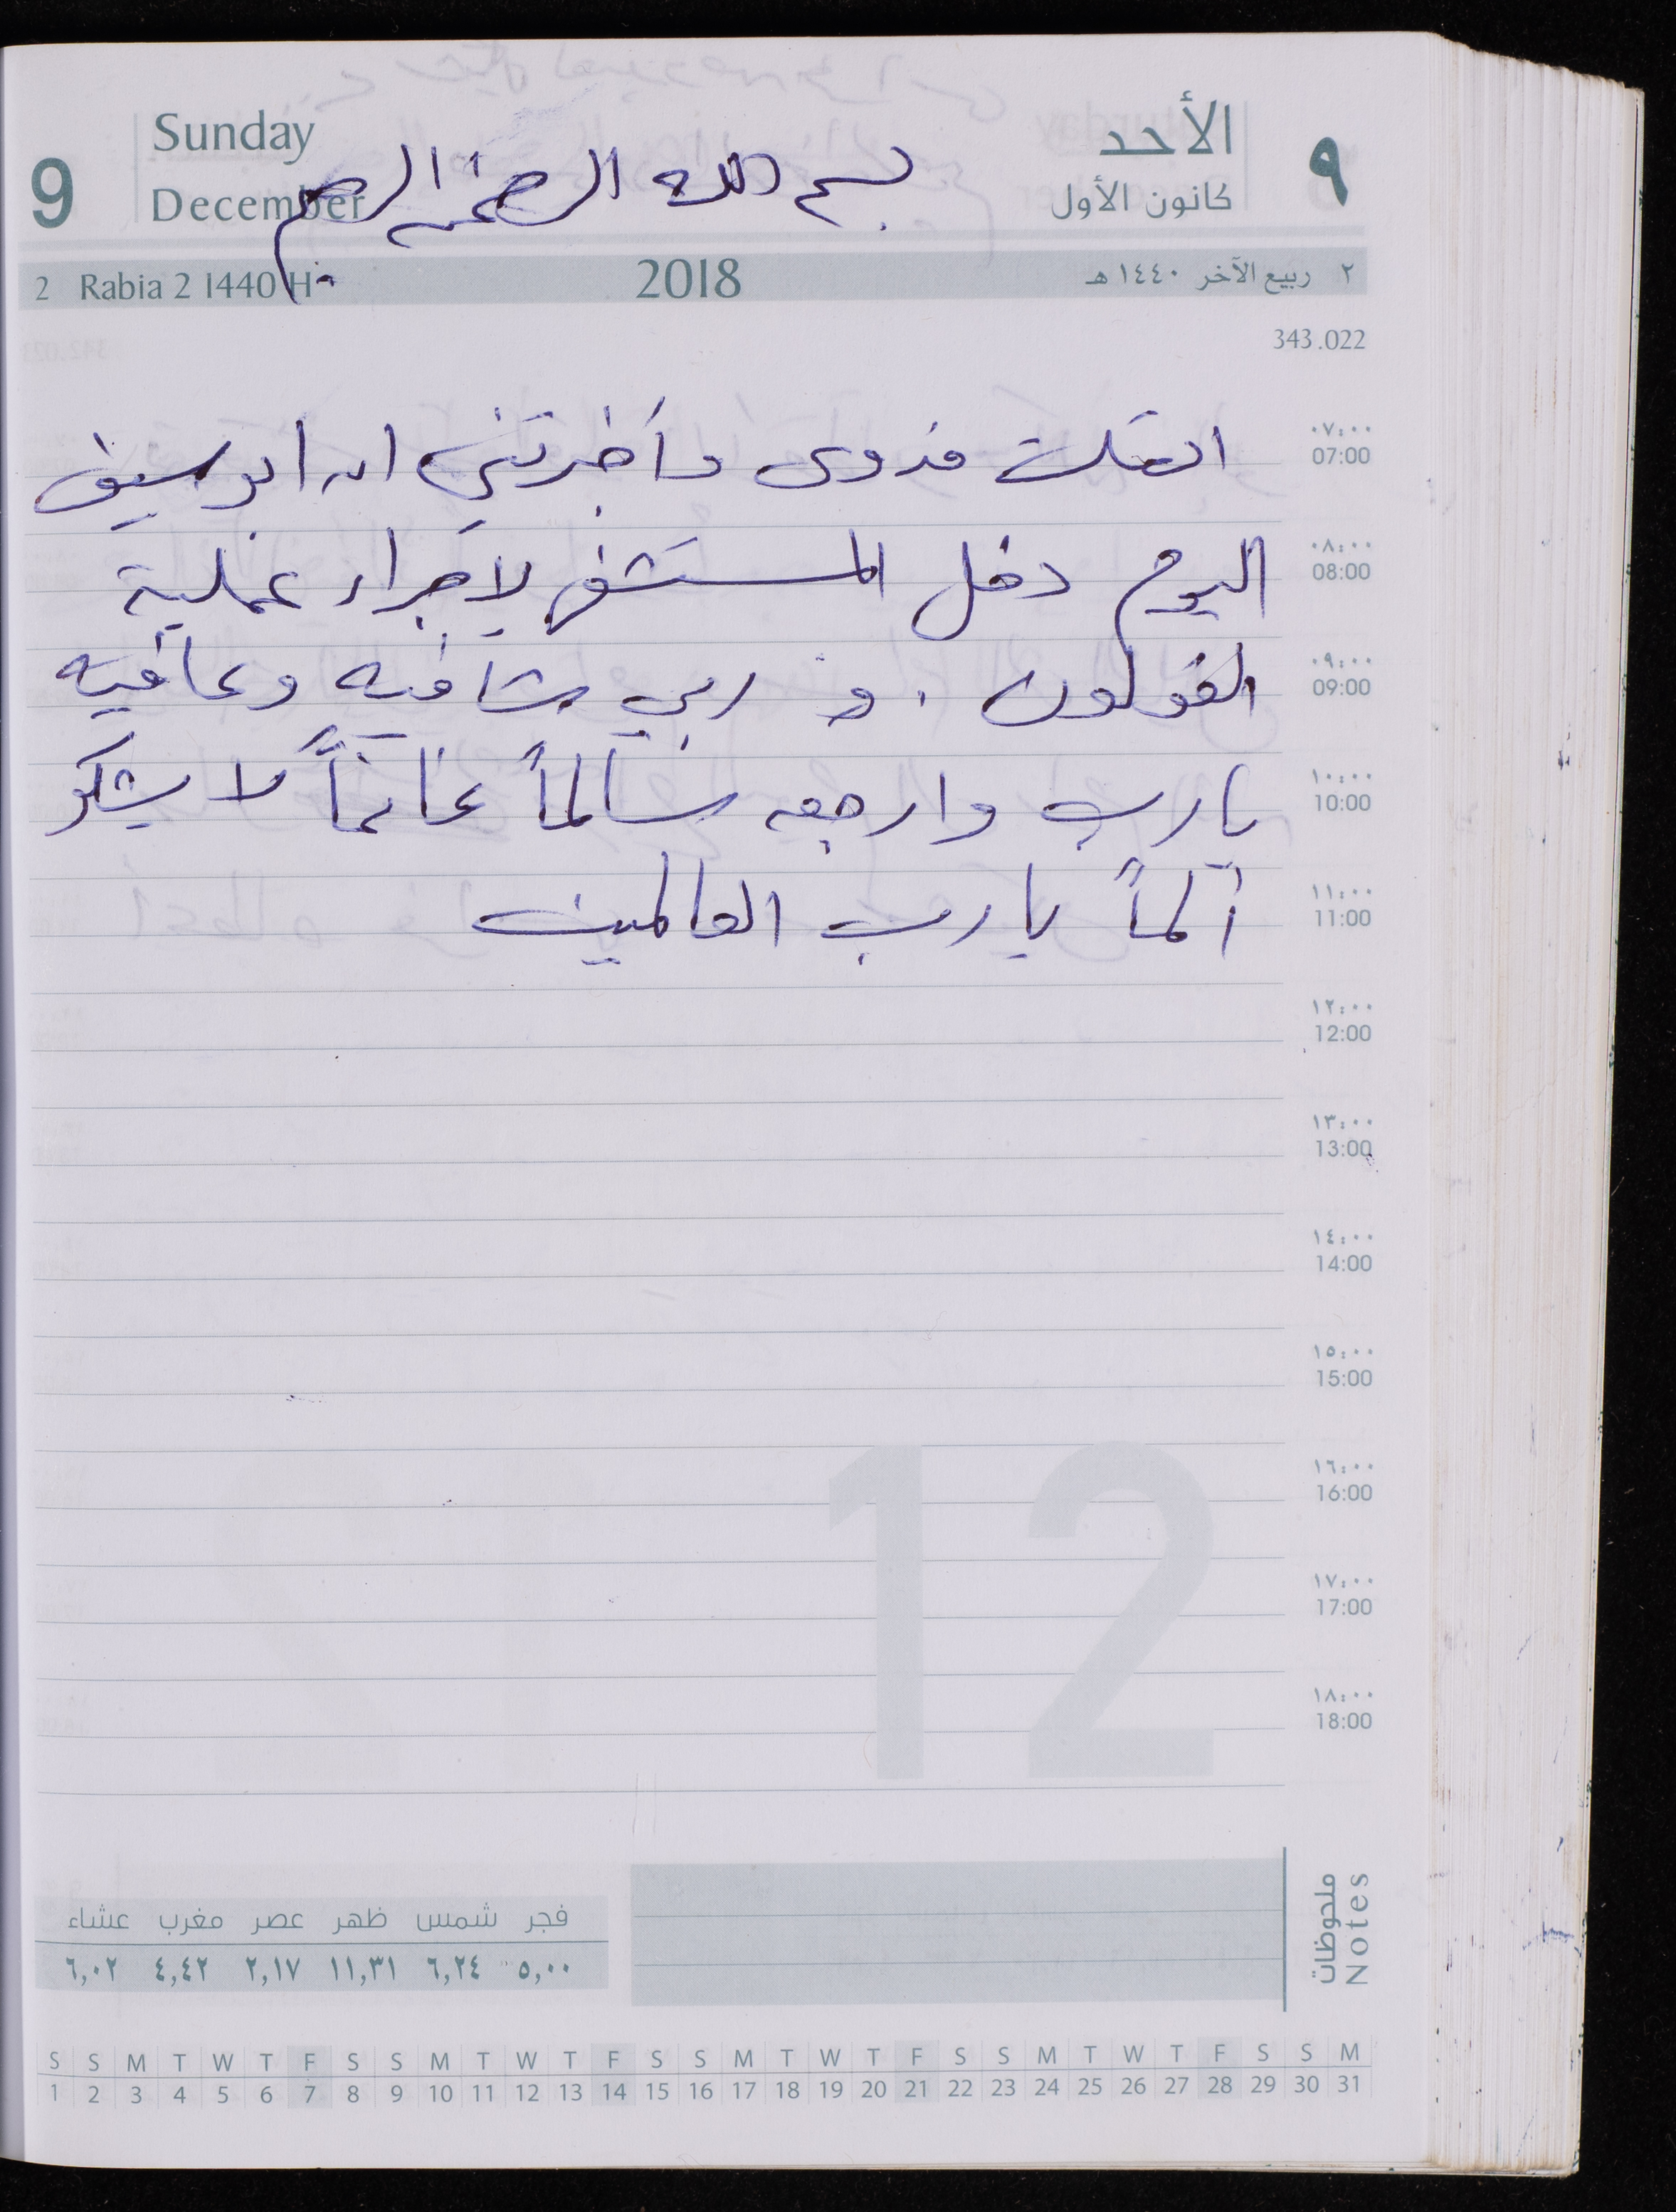 9
Sunday
December
بسم الله الرحمن الرحيم
الأحد
كانون الأول
٩
2 Rabia 2 1440 H
2018
٢ ربيع الآخر ١٤٤٠ هـ
343.022
اتصلت فدوى وأخبرتني ان ابو سيف
٠٧:٠٠
07:00
اليوم دخل المستشفى لإجراء عملية
٠٨:٠٠
08:00
القولون . و ربي يشافيه وعافيه
٠٩:٠٠
09:00
يارب وارجعه سالماً غانماً لا يشكو
١٠:٠٠
10:00
ألماً يارب العالمين
١١:٠٠
11:00
١٢:٠٠
12:00
١٣:٠٠
13:00
١٤:٠٠
14:00
١٥:٠٠
15:00
١٦:٠٠
16:00
12
١٧:٠٠
17:00
١٨:٠٠
18:00
ملحوظات
Notes
فجر شمس ظهر عصر مغرب عشاء
٥,٠٠ ٦,٢٤ ١١,٣١ ٢,١٧ ٤,٤٢ ٦,٠٢
S S M T W T F S S M T W T F S S M T W T F S S M T W T F S S M
1 2 3 4 5 6 7 8 9 10 11 12 13 14 15 16 17 18 19 20 21 22 23 24 25 26 27 28 29 30 31